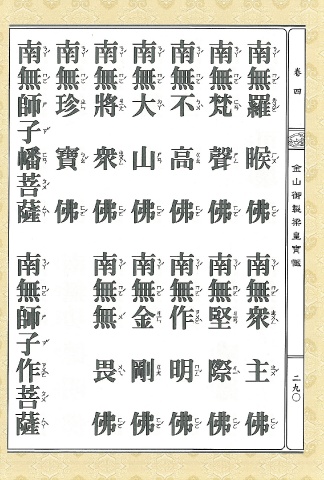 卷四 金山御製梁皇寶懺 二九〇
南無羅睺佛 南無衆主佛
南無梵聲佛 南無堅際佛
南無不高佛 南無作明佛
南無大山佛 南無金剛佛
南無將衆佛 南無無畏佛
南無珍寶佛
南無師子幡菩薩 南無師子作菩薩